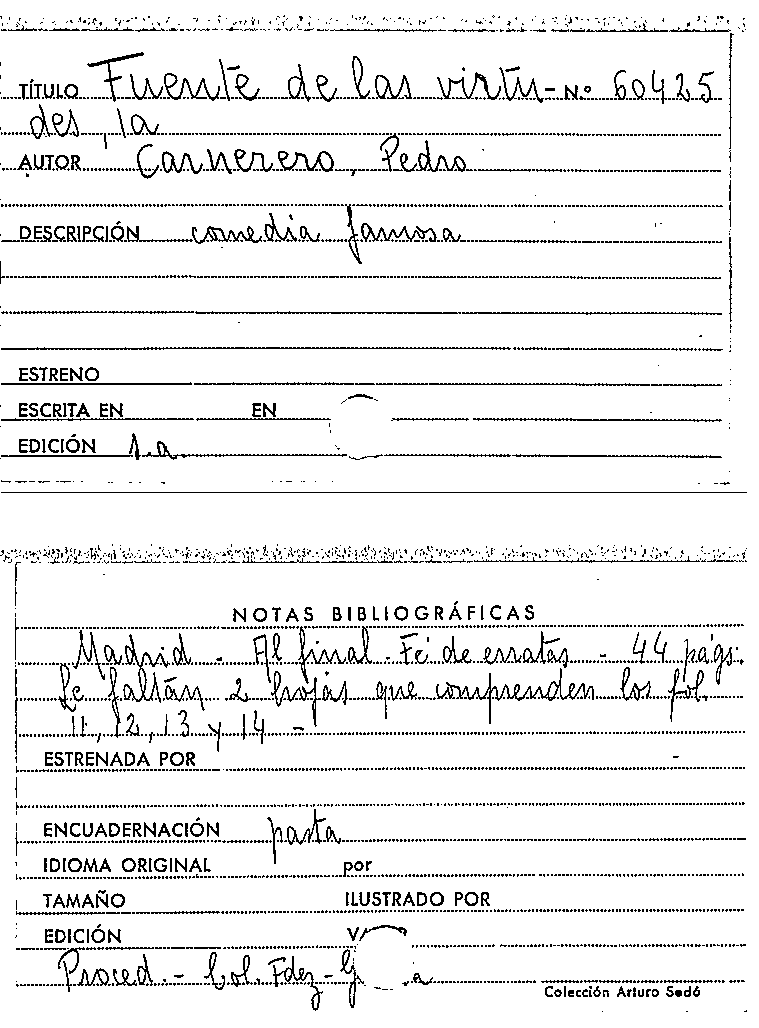 TÍTULO Fuente de las virtu- N.º 60425
des, la
AUTOR Carnerero, Pedro
DESCRIPCIÓN comedia famosa
ESTRENO
ESCRITA EN EN
EDICIÓN s.a.
NOTAS BIBLIOGRÁFICAS
Madrid - Al final - Fé de erratas - 44 págs.
Le faltán 2 hojas que comprenden los fol.
11, 12, 13 y 14 -
ESTRENADA POR
ENCUADERNACIÓN pasta
IDIOMA ORIGINAL por
TAMAÑO ILUSTRADO POR
EDICIÓN
Proced.- Col. Fdez-
Colección Arturo Sedó